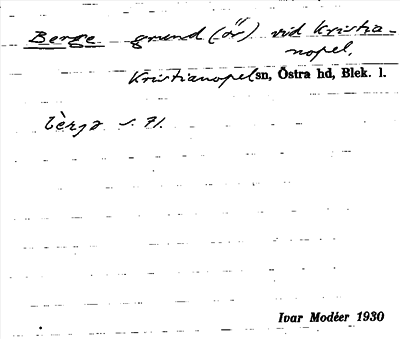 Berge grund (ör) vid Kristia-
nopel.
Kristianopel sn, Östra hd, Blek. l.
bèrgə s. 71.
Ivar Modéer 1930